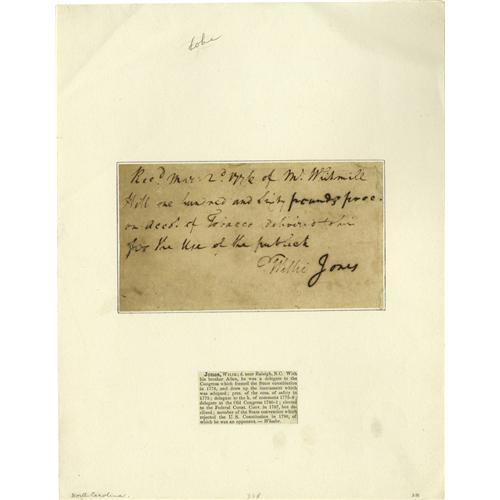 Rec.d Mar: 2.d 1776 of Mr. Whitmill
Hill one hundred and sixty pounds proc.
on Acco.t of Tobacco deliver'd
for the Use of the publick
Willie Jones
Jones, WILIE; d. near Raleigh, N.C. With
his brother Allen, he was a delegate to the
Congress which framed the State constitution
in 1776, and drew up the instrument which
was adopted; pres. of the com. of safety in
1775; delegate to the h. of commons 1776-8;
delegate to the Old Congress 1780-1; elected
to the Federal Const. Conv. in 1787, but de-
clined; member of the State convention which
rejected the U. S. Constitution in 1788, of
which he was an opponent. — Wheeler.
North Carolina.